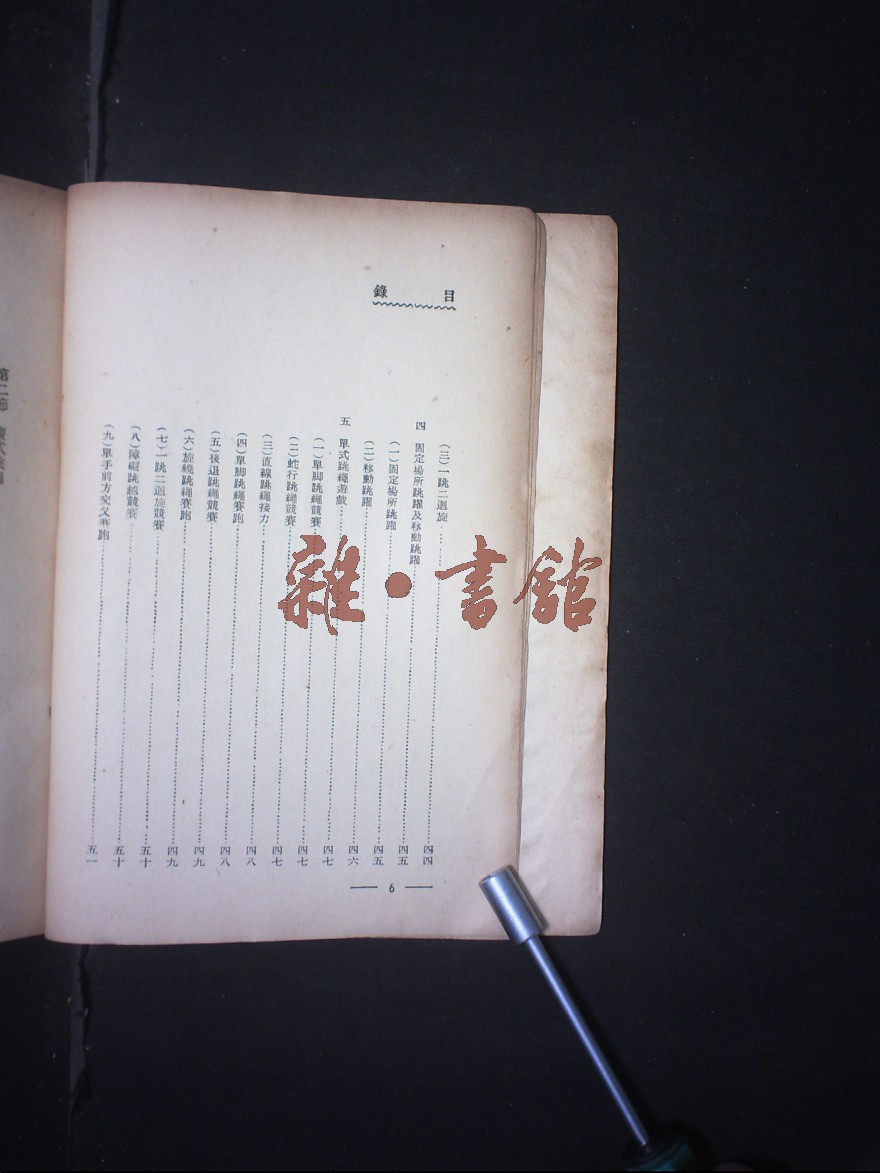 目錄
(三)一跳二迴旋……四四
四 固定場所跳躍及移動跳躍……四五
(一)固定場所跳躍……四五
(二)移動跳躍……四六
五 單式跳繩遊戲……四七
(一)單脚跳繩競賽……四七
(二)蛇行跳繩競賽……四七
(三)直線跳繩接力……四八
(四)單脚跳繩賽跑……四八
(五)後退跳繩競賽……四九
(六)旋繞跳繩賽跑……四九
(七)一跳二迴旋競賽……五十
(八)障礙跳繩競賽……五十
(九)單手前方交叉賽跑……五一
6
第二節
雜·書館